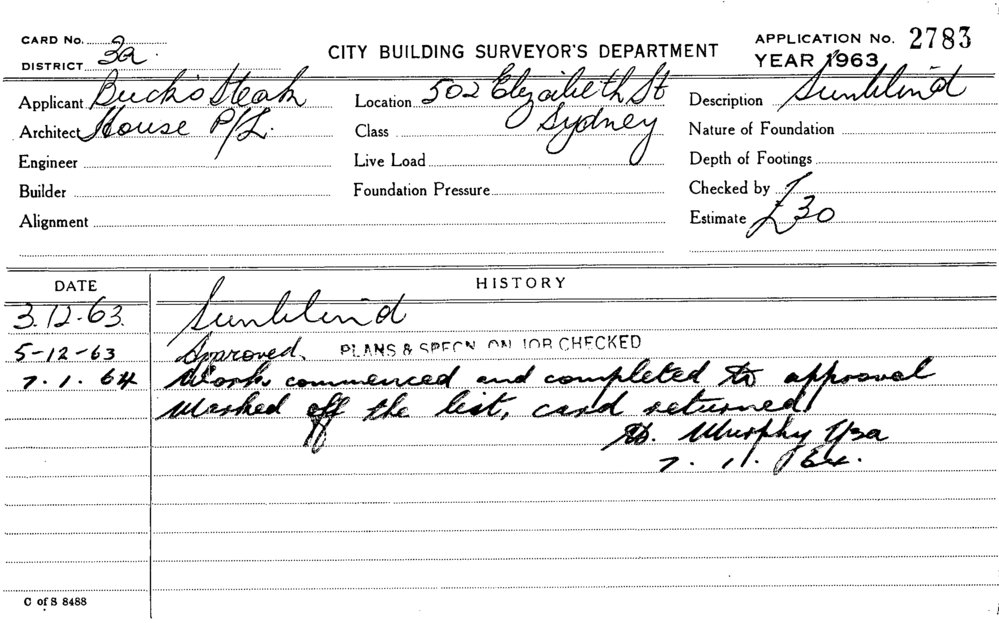 CARD No.
DISTRICT 3a
CITY BUILDING SURVEYOR'S DEPARTMENT
APPLICATION No. 2783
YEAR 1963
Applicant Buck's Steak
Location 502 Elizabeth St
Description Sunblind
Architect House P/L.
Class Sydney
Nature of Foundation
Engineer
Live Load
Depth of Footings
Builder
Foundation Pressure
Checked by
Alignment
Estimate £30
DATE
HISTORY
3.12.63. Sunblind
5-12-63 Approved. PLANS & SPECN. ON JOB CHECKED
7.1.64 Work commenced and completed to approval
Marked off the list, card returned
Murphy
7.1.64.
C of S 8488